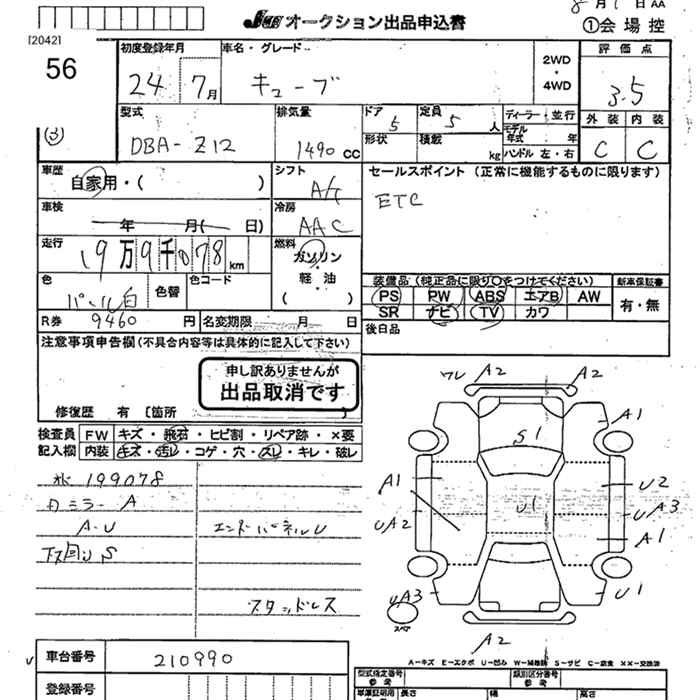 8 1 AA
JU オークション出品申込書
①会場控
[2042]
56
③
初度登録年月 車名・グレード 評価点
24 7月 キューブ
2WD
・
4WD
3.5
型式 排気量 ドア 定員 ディーラー・並行 外装 内装
DBA-Z12 1490cc 5 5人
モデル年式 年
形状 積載 kg
ハンドル 左・右
C C
車歴 シフト セールスポイント(正常に機能するものに限ります)
自家用・( ) A/T ETC
車検 冷房
年 月( 日) AAC
走行 燃料
19万9千078km ガソリン
・
軽油
( )
色 色替 色コード
パール白
装備品(純正品に限り○をつけてください) 新車保証書
PS PW ABS エアB AW 有・無
SR ナビ TV カワ
R券 9460円 名変期限 月 日
後日品
注意事項申告欄(不具合内容等は具体的に記入して下さい)
申し訳ありませんが
出品取消です
修復歴 有 〔箇所 〕
検査員 FW キズ・飛石・ヒビ割・リペア跡・×要
記入欄 内装 キズ・汚レ・コゲ・穴・スレ・キレ・破レ
199078
ミラー A
A-U エンドパネルU
下回りS
スタッドレス
ワレ A2 A2
A1
S1
A1 U2
U1
UA2 UA3
A1
UA3 U1
スペア
A2
A-キズ E-エクボ U-凹み W-補修跡 S-サビ C-腐食 XX-交換済
車台番号 210990
登録番号
型式指定番号 参考 類別区分番号 参考
車庫証明用 長さ 幅 高さ